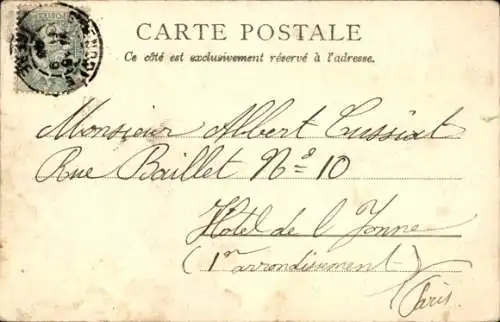 CARTE POSTALE
Ce côté est exclusivement réservé à l'adresse.
Monsieur Albert Cussiat
Rue Baillet Nº 10
Hotel de l Yonne
(1er arrondissement)
Paris.